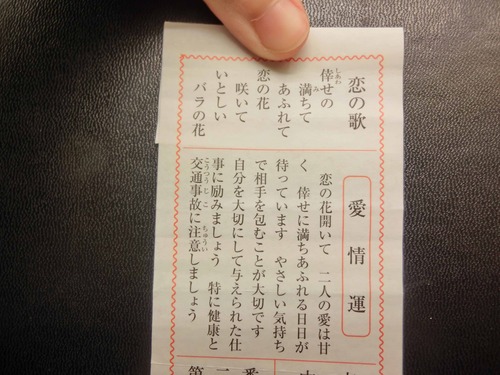 恋の歌
倖せの
満ちて
あふれて
恋の花
咲いて
いとしい
バラの花
愛情運
恋の花開いて 二人の愛は甘
く 倖せに満ちあふれる日日が
待っています やさしい気持ち
で相手を包むことが大切です
自分を大切にして与えられた仕
事に励みましょう 特に健康と
交通事故に注意しましょう
第二番